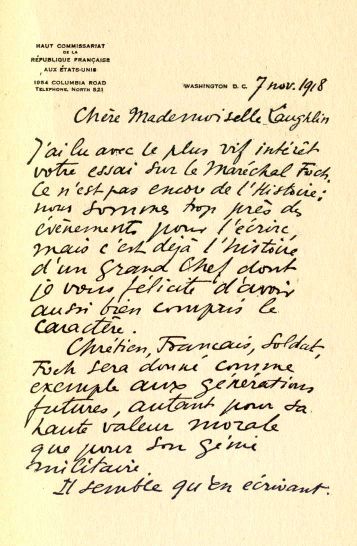 HAUT COMMISSARIAT
DE LA
RÉPUBLIQUE FRANÇAISE
AUX ÉTATS-UNIS
1954 COLUMBIA ROAD
TELEPHONE, NORTH 821
WASHINGTON D. C. 7 nov. 1918
Chère Mademoiselle Laughlin
J'ai lu avec le plus vif intérêt
votre essai sur le Maréchal Foch.
Ce n'est pas encore de l'Histoire;
nous sommes trop près des
évènements pour l'écrire
mais c'est déjà l'histoire
d'un grand Chef dont
je vous félicite d'avoir
aussi bien compris le
caractère.
Chrétien, Français, Soldat,
Foch sera donné comme
exemple aux générations
futures, autant pour sa
haute valeur morale
que pour son génie
militaire.
Il semble qu'en écrivant.